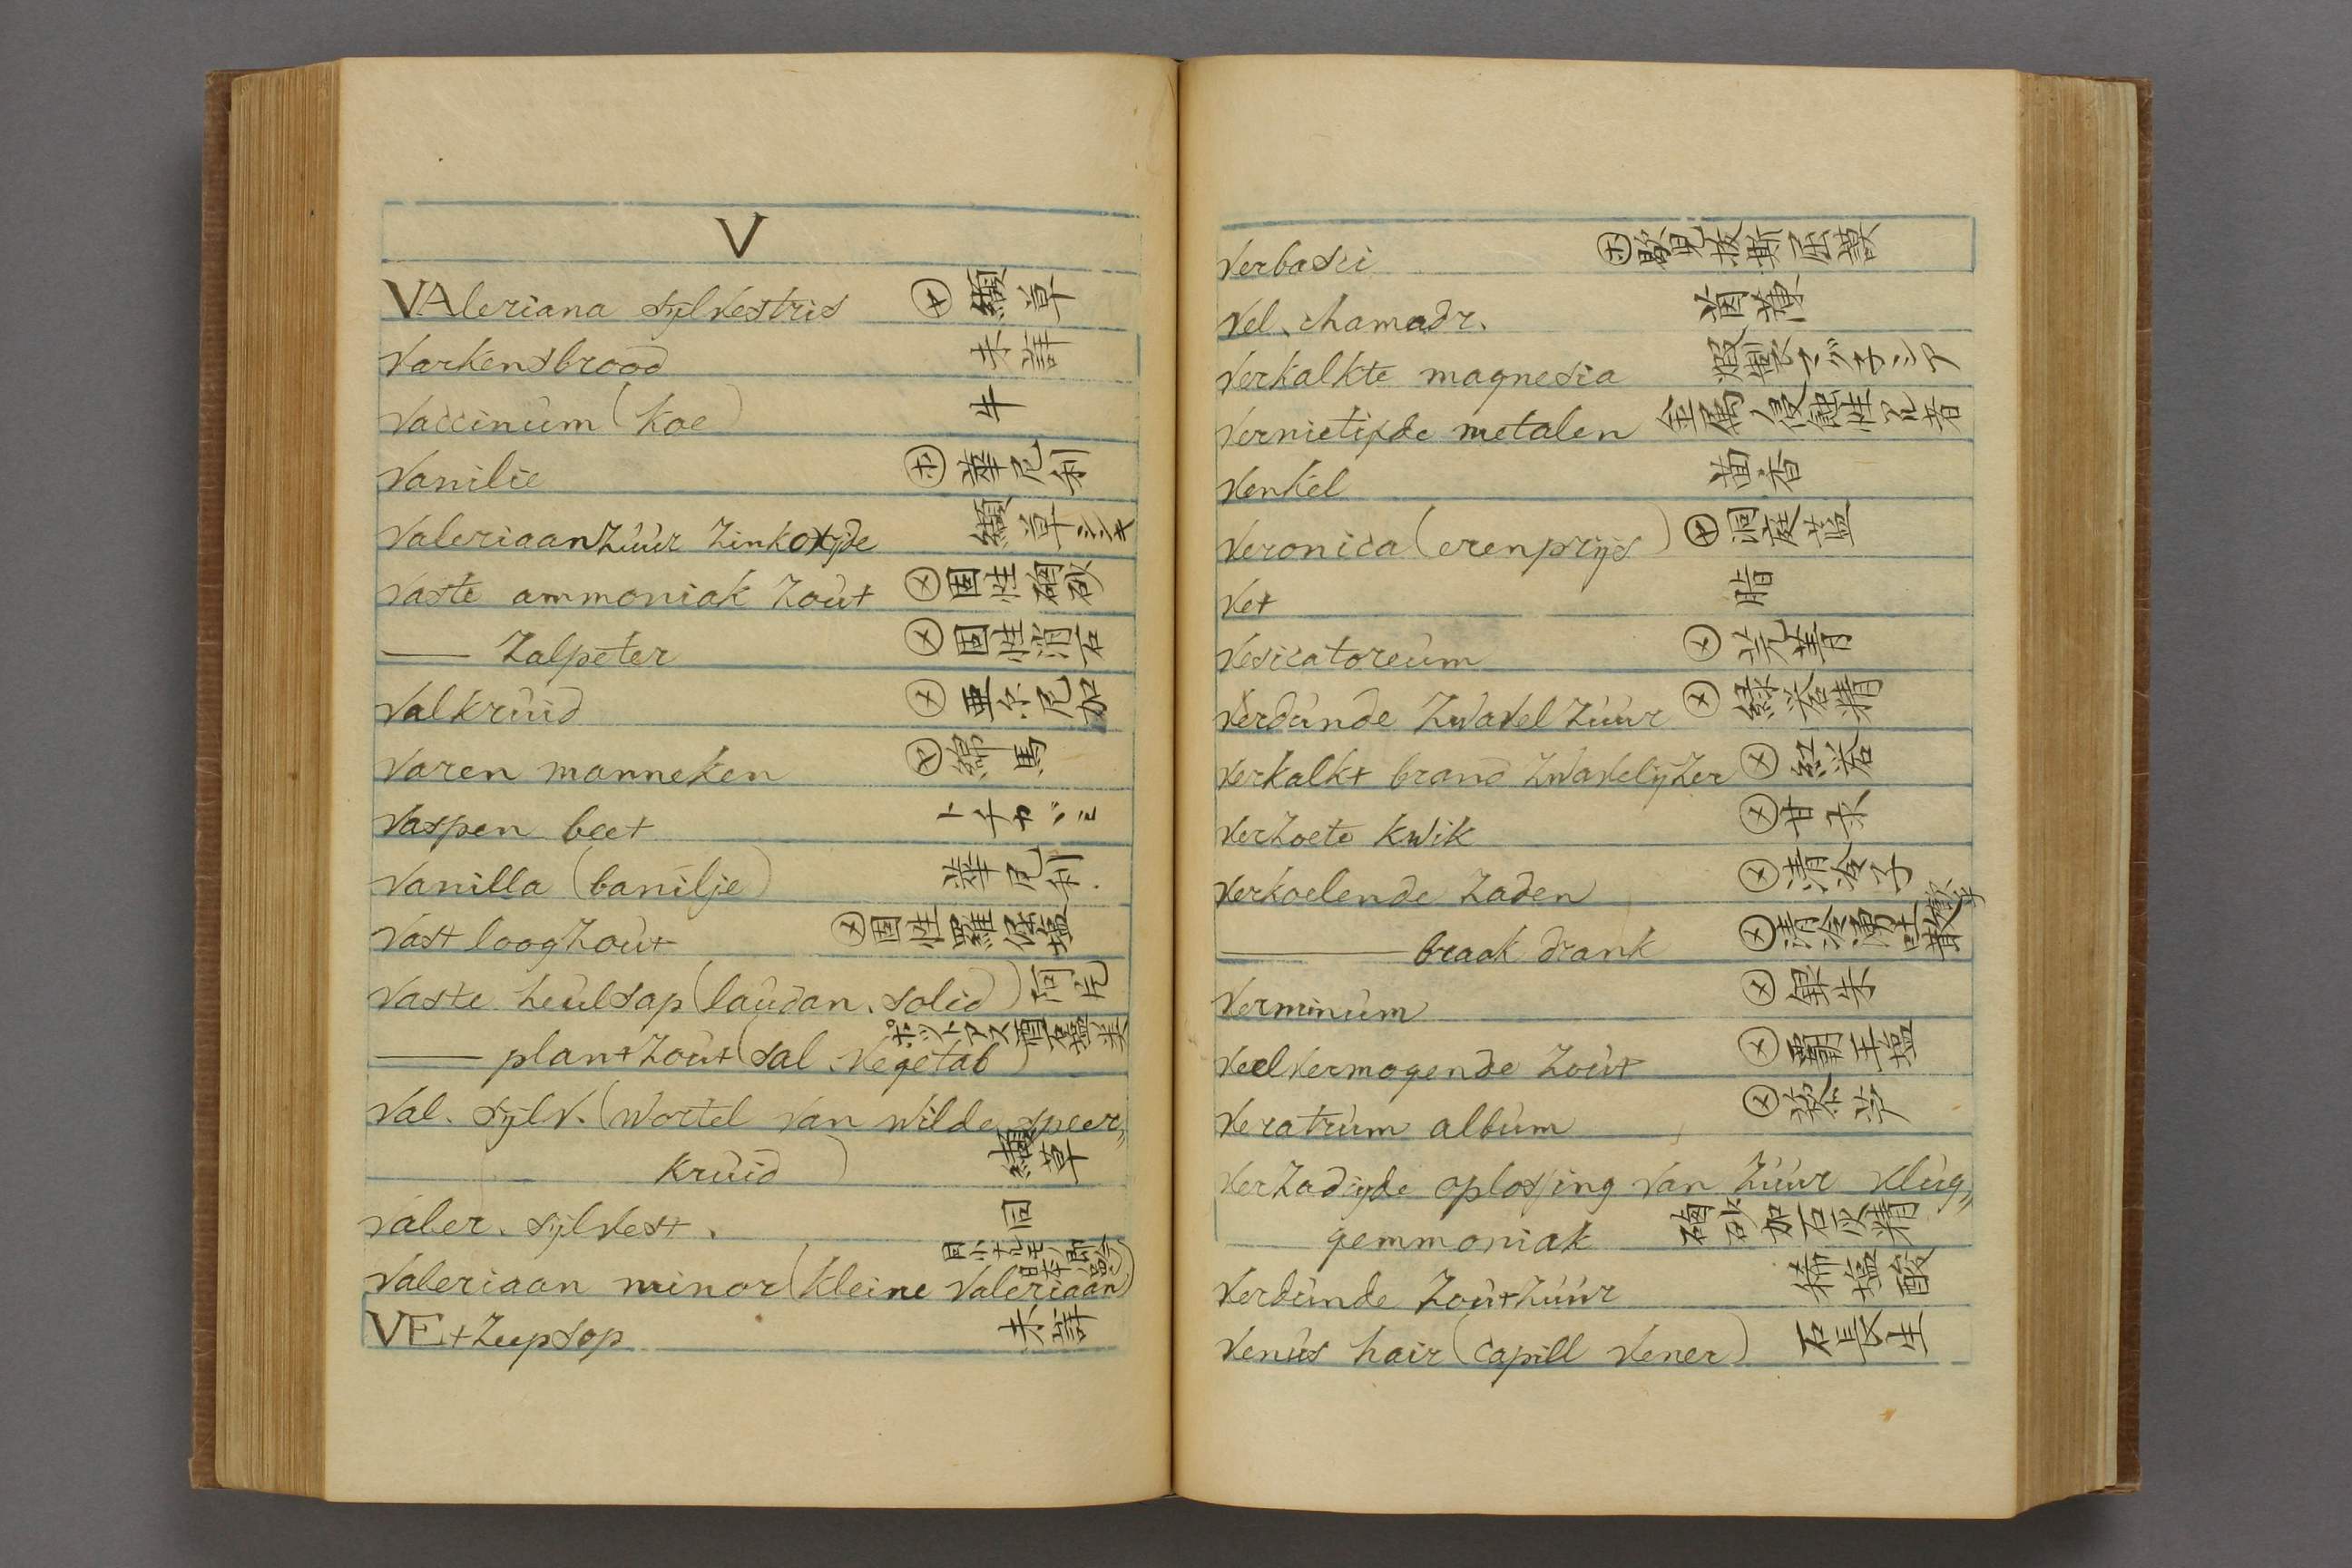 V
VAleriana sylvestris ㋱ 纈草
Varkensbrood 朱
Vaccinum (koe) 牛
Vanilie ㋭ 華尼利
Valeriaanzúúr zinkoxyde 纈草
Vaste ammoniak zoút ㋱ 固性磠砂
—— zalpeter ㋱ 固性消石
Valkrúid ㋱ 亜尓尼加
Varen manneken 綿馬
Vaspen beet
Vanilla (banilje) 華尼利.
Vast loogzoút ㋱ 固性羅塩
Vaste heúlsap (laúdan. solid) 阿片
—— plantzoút (sal. vegetab) ポットアス酒石塩
Val. sylv. (wortel van wilde speer„
krúid) 纈草
Valer. sylvest. 同
Valeriaan minor (kleine valeriaan)
VEtzeepsop
Verbasci ㋭
Vel. chamadr.
Verkalkte magnesia 煆製マグ子シア
Vernietixde metalen 金属ノ侵蝕性
Venkel 茴香
Veronica (erenprijs)
Vet 脂
Vesicatoreúm ㋱ 芫菁
Verdúnde zwavel zúúr ㋱ 緑礬精
Verkalkt brand zwavelyzer ㋱ 紅礬
Verzoete kwik ㋱ 甘汞
Verkoelende zaden ㋱ 清冷子
—— braak drank ㋱ 清冷湧吐散
Verminúm ㋱ 銀朱
Veelvermogende zoút ㋱ 覇王塩
Veratrúm albúm ㋱ 藜芦
Verzadigde oplossing van zúúr vlúg„
gemmoniak 磠砂加石灰精
Verdúnde zoútzúúr 稀塩酸
Venús hair (capill vener) 石長生